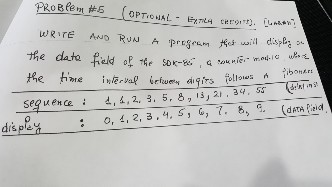 PROBLEM #5 (OPTIONAL - EXTRA CREDITS).
WRITE AND RUN A program that will display on
the data field of the SDK-85, a counter mod-10 where
the time interval between digits follows a fibonacci
sequence : 1, 1, 2, 3, 5, 8, 13, 21, 34, 55
display : 0, 1, 2, 3, 4, 5, 6, 7, 8, 9. (DATA field